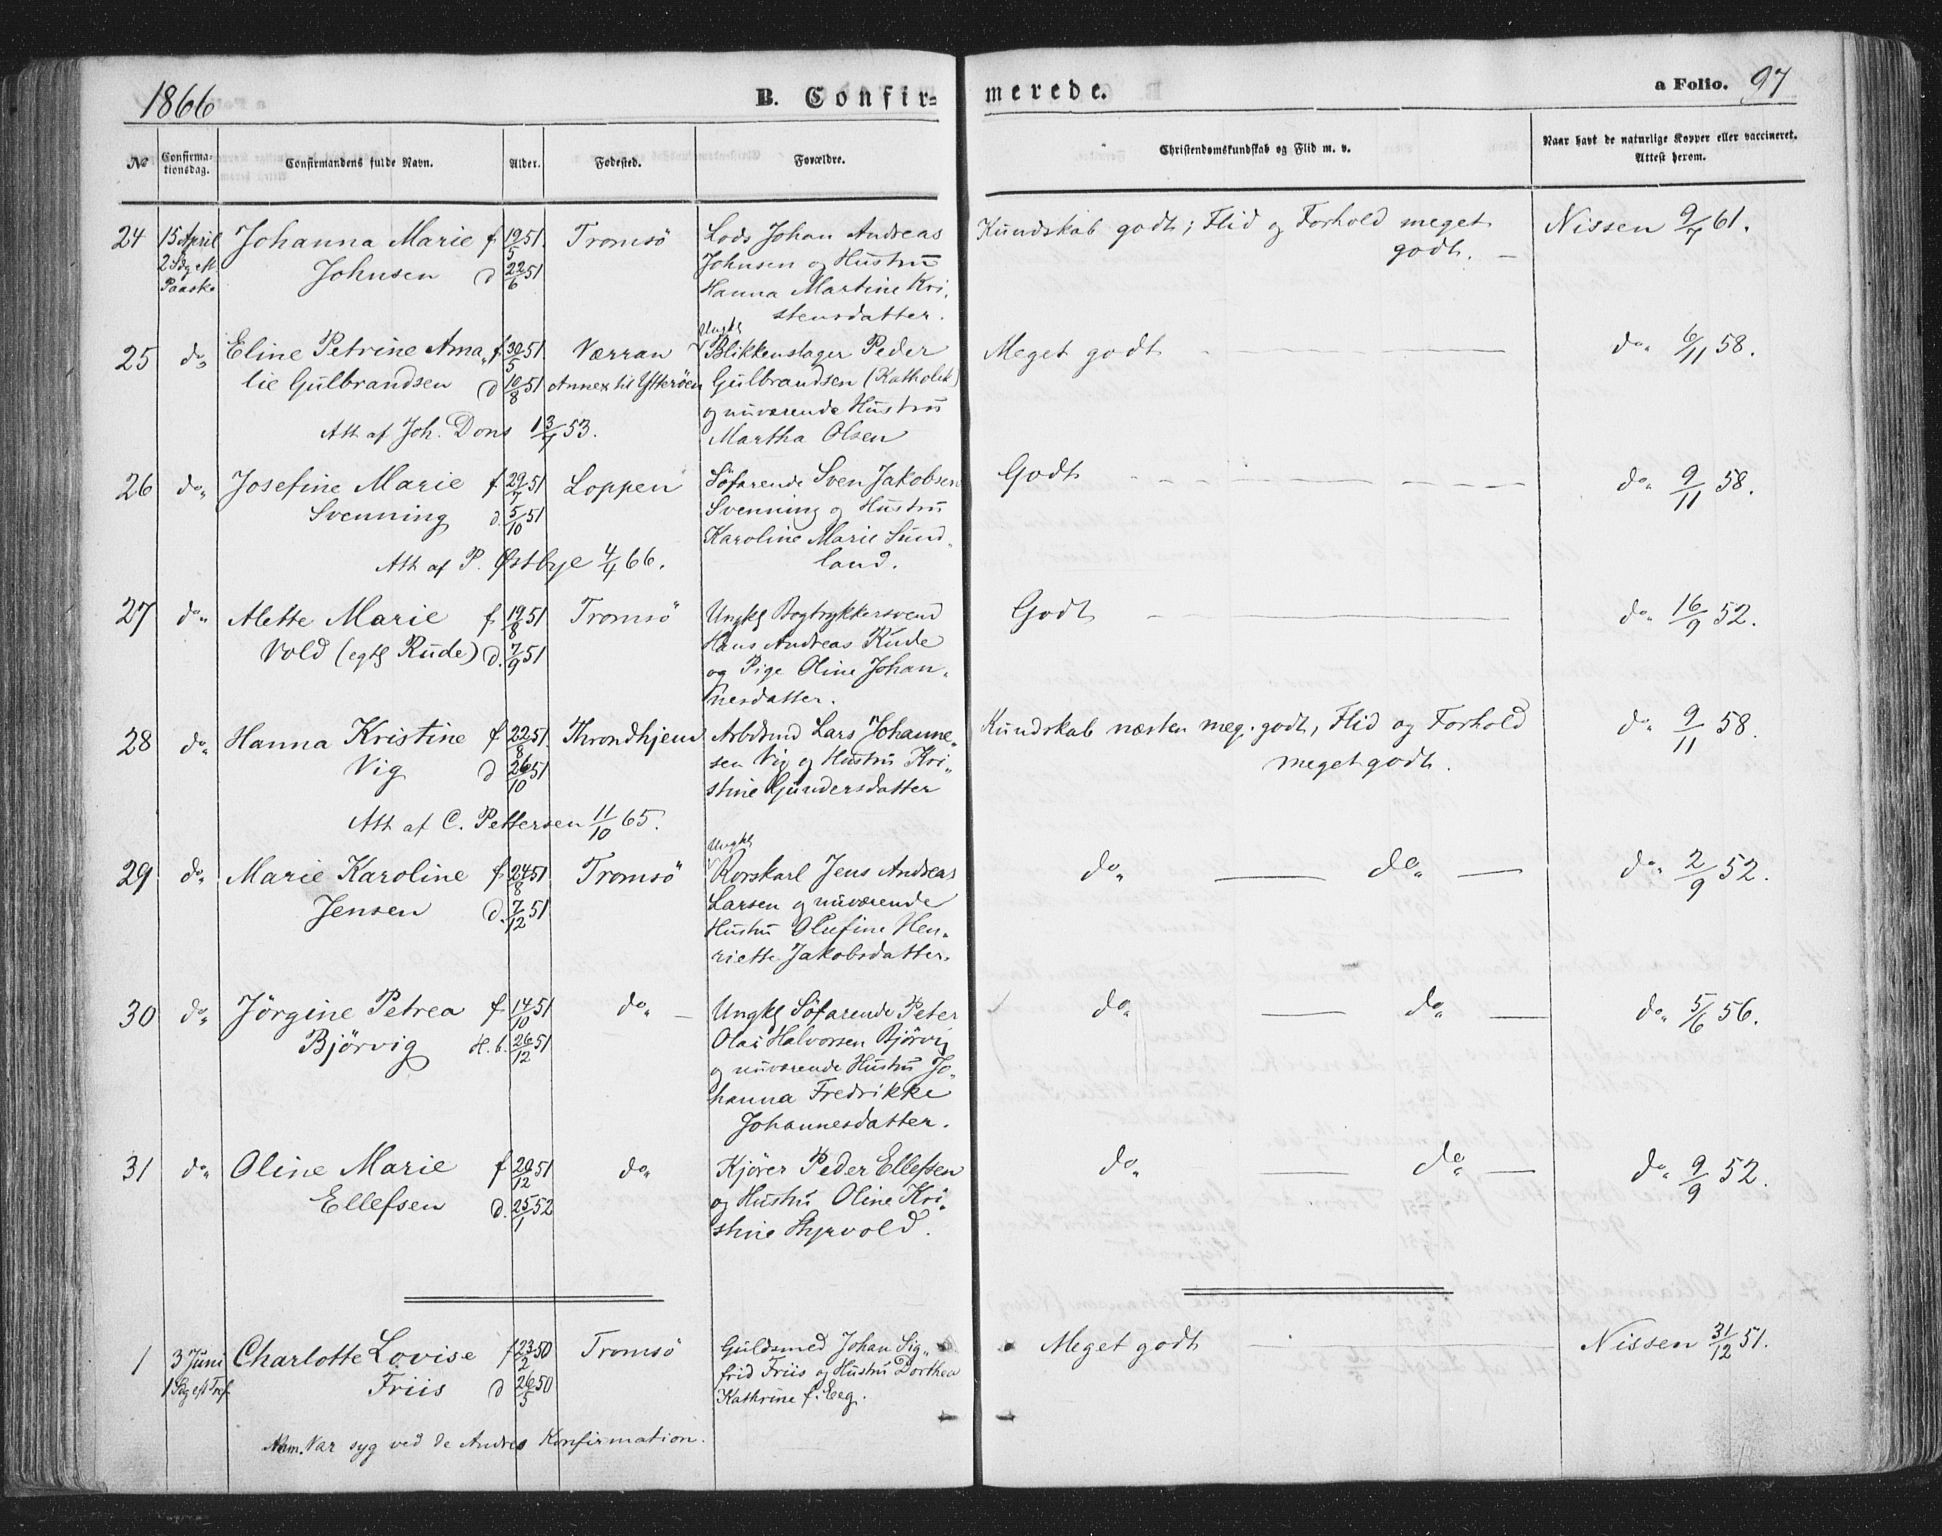 1866 B. Confir= merede. a Folio. 97
No Confirma-tionsdag. Confirmandens fulde Navn. Alder. Fødested. Forældre. Christendomskundskab og Flid m. v. Naar havt de naturlige Kopper eller vaccineret. Attest herom.
24 15 April Johanna Marie f. 19/5 51 Tromsö Lods Johan Andreas Kundskab godt; Flid og Forhold meget Nissen 9/7 61.
2 Sdg e/ Johnsen d 22/6 51 Johnsen og Hustru godt. —
Paaske Hanna Martine Kri-
stensdatter.
Ungkl
25 do Eline Petrine Ama- f. 30/5 51. Værran Blikkenslager Peder Meget godt do 6/11 58.
lie Gulbrandsen d 10/8 51 Annex til Ytterøen Gulbrandsen (Katholik)
og nuværende Hustru
Att af Joh. Dons 13/4 53. Martha Olsen
26 do Josefine Marie f 29/7 51 Loppen Söfarende Sven Jakobsen Godt do 9/11 58.
Svenning d. 5/10 51 Svenning og Hustru
Karoline Marie Sund-
Att af P. Østbye 4/4 66. land.
27 do Alette Marie f. 19/8 51 Tromsö Ungkl Bogtrykkersvend Godt do 16/9 52.
Vold (egtl Rude) d. 7/9 51 Hans Andreas Rude
og Pige Oline Johan-
nesdatter.
28 do Hanna Kristine f 22/8 51. Throndhjem Arbdmd Lars Johanne- Kundskab næsten meg. godt, Flid og Forhold do 9/11 58.
Vig d 26/10 51 sen Vig og Hustru Kri- meget godt.
stine Gundersdatter
Att af C. Pettersen 11/10 65.
Ungkl
29 do Marie Karoline f. 24/8 51 Tromsö Rorskarl Jens Andreas do do do 2/9 52.
Jensen d. 7/12 51 Larsen og nuværende
Hustru Olufine Hen-
riette Jakobsdatter.
30 do Jörgine Petrea f. 14/10 51 do Ungkl Söfarende Peter do do do 5/6 56.
Bjørvig H. b. 26/12 51 Olai Halvorsen Björvig
og nuværende Hustru Jo-
hanna Fredrikke
Johannesdatter.
31 do Oline Marie f 20/12 51 do Kjörer Peder Ellefsen do do do 9/9 52.
Ellefsen d. 25/1 52 og Hustru Oline Kri-
stine Styrvold.
1 3 Juni Charlotte Lovise f 23/2 50 Tromsö Guldsmed Johan Sig- Meget godt Nissen 31/12 51.
1 Sdg e/ Tref. Friis d 26/5 50 frid Friis og Hustru Dorthea
Kathrine f. Eeg.
Anm. Var syg ved de Andres Konfirmation.